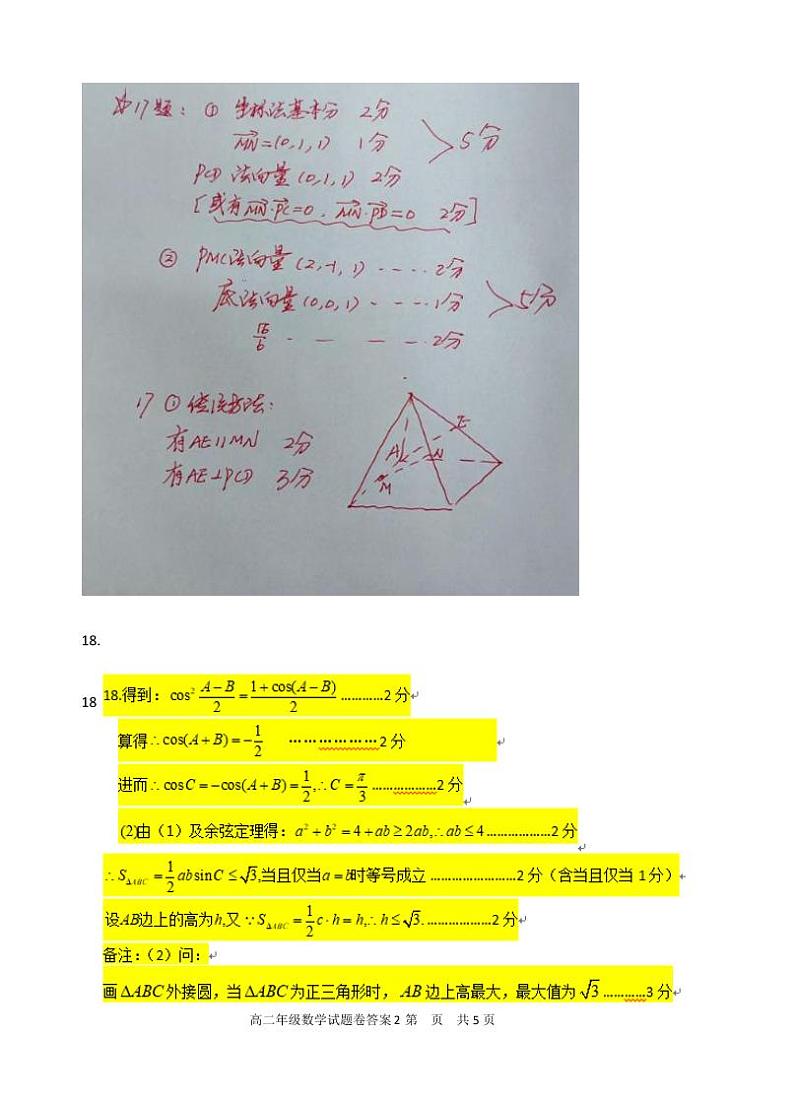 17题: ① 坐标法基本分 2分
MN=(0,1,1) 1分
PCD 法向量(0,1,1) 2分
5分
[或有MN·PC=0, MN·PD=0 2分]
② PMC法向量(2,-1,1)····2分
底法向量(0,0,1)····1分
5分
√6/6 · — — —··2分
17 ① 传统方法:
有AE∥MN 2分
有AE⊥PCD 3分
E
A
N
M
18.
18
18.得到: cos² (A−B)/2 = (1+cos(A−B))/2 …………2 分
算得∴cos(A+B)=−1/2 ………………2 分
进而∴cosC=−cos(A+B)=1/2,∴C=π/3 ………………2 分
(2)由（1）及余弦定理得: a²+b²=4+ab≥2ab,∴ab≤4 ………………2 分
∴S△ABC=1/2 ab sinC≤√3,当且仅当a=b时等号成立 ……………………2 分（含当且仅当 1 分）
设AB边上的高为h,又∵S△ABC=1/2 c·h=h,∴h≤√3. ………………2 分
备注:（2）问:
画△ABC外接圆，当△ABC为正三角形时，AB边上高最大，最大值为√3 …………3 分
高二年级数学试题卷答案 2 第 页 共 5 页